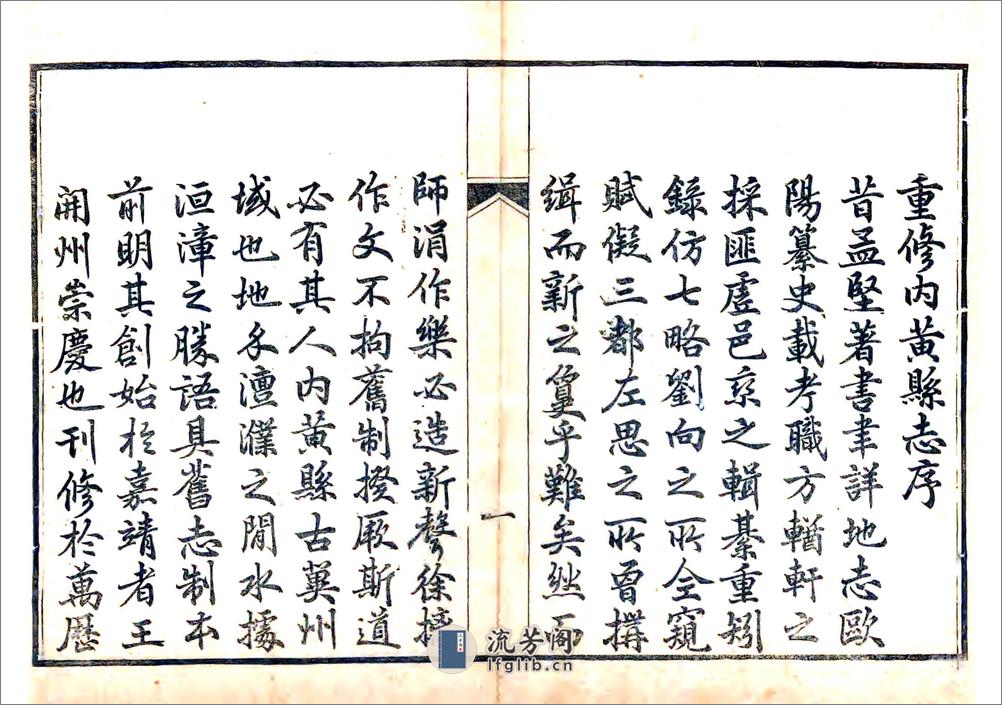 重修内黄縣志序
昔孟堅著書聿詳地志歐
陽纂史載考職方輶軒之
採匪虛邑乘之輯綦重矧
錄仿七略劉向之所仝窺
賦儗三都左思之所曾搆
緝而新之戛乎難矣然而
一
師涓作樂必造新聲徐摛
作文不拘舊制揆厥斯道
必有其人内黄縣古冀州
域也地介澶濮之間水據
洹漳之勝語具舊志制本
前明其創始於嘉靖者王
開州崇慶也刊修於萬歷
流芳阁
lfglib.cn